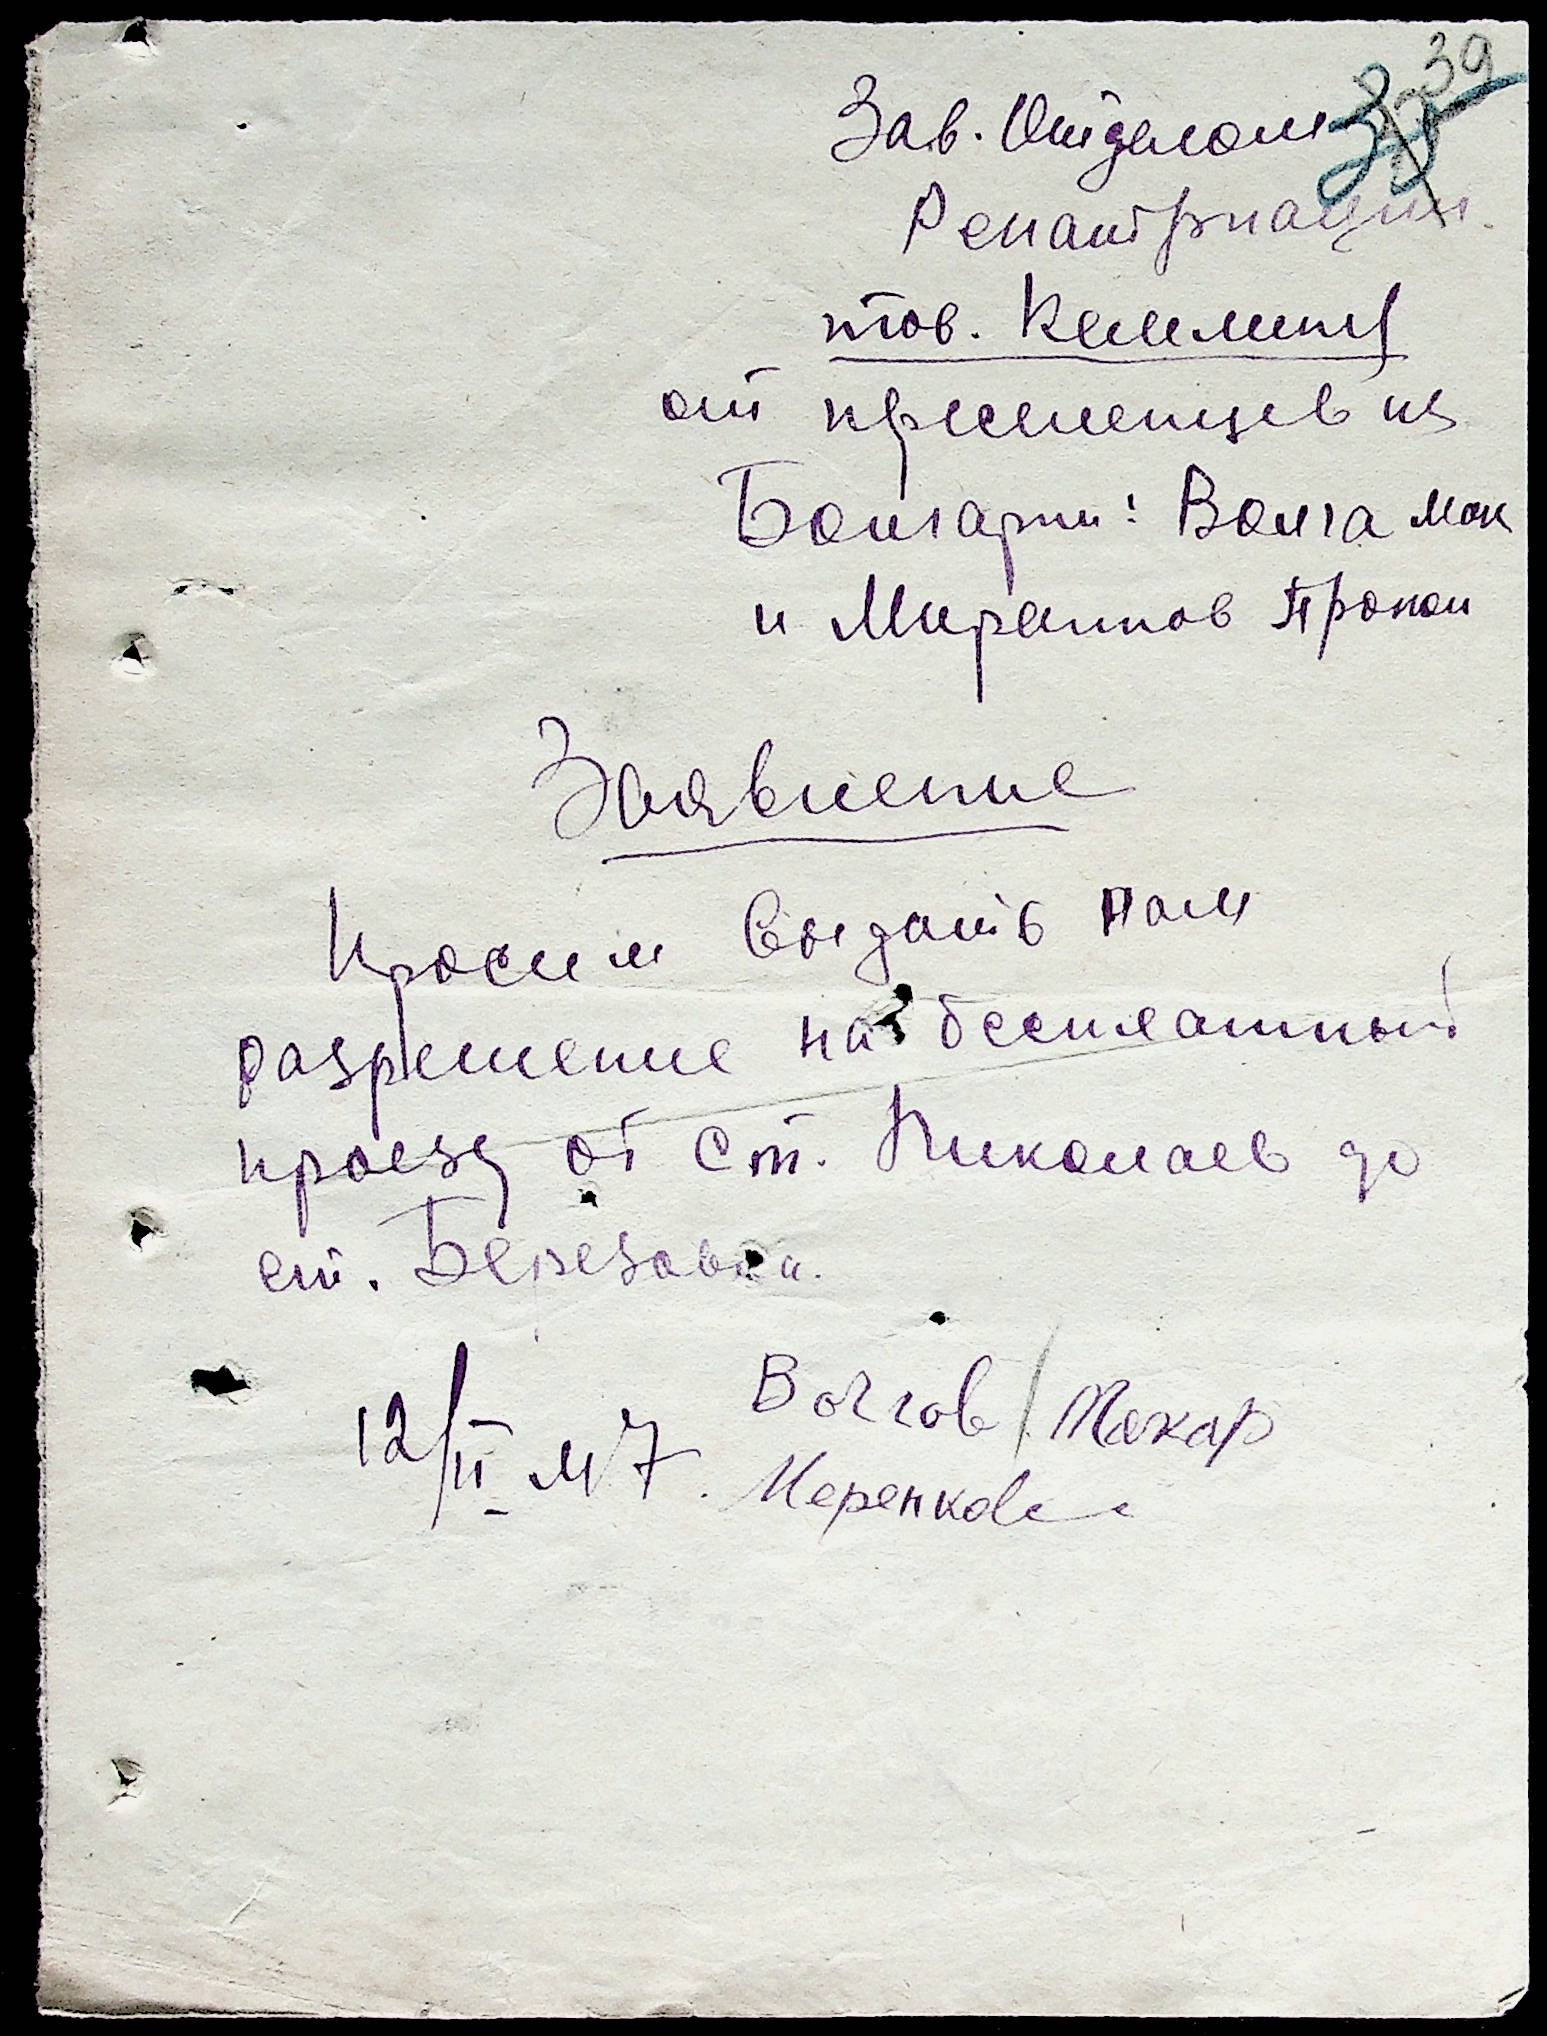 39
Зав. Отделом
Репатриации
тов.
от переселенцев из
Болгарии: Волга Мак
и Прокоп
Заявление
Просим выдать нам
разрешение на бесплатный
проезд от ст. Николаев до
ст. Березовка.
12/II 47. Волгов Макар